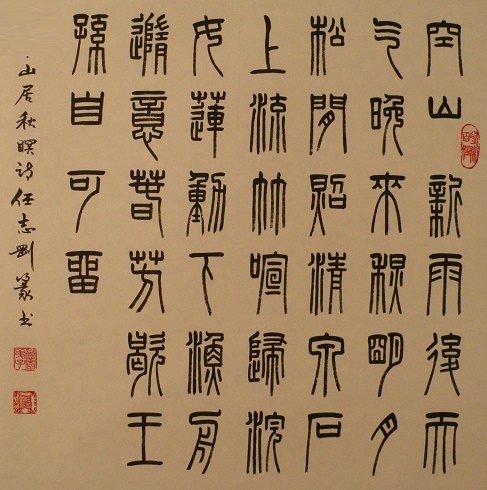 空山新雨後天
气晚來秋明月
松間照清泉石
上流竹喧歸浣
女蓮動下漁舟
隨意春芳歇王
孫自可留
山居秋暝诗任志剛篆书